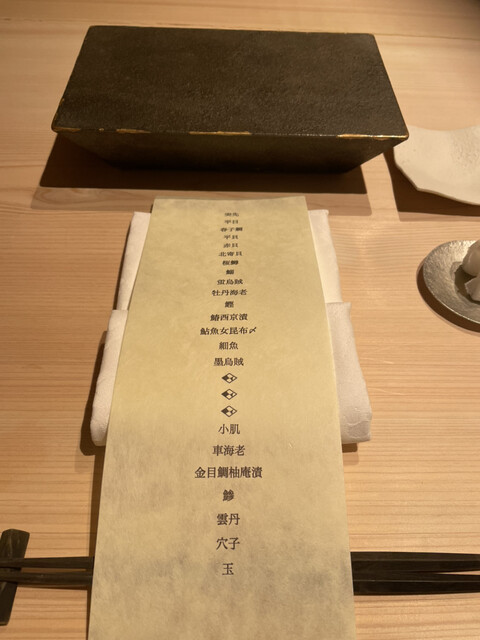 平目
春子鯛
平貝
赤貝
北寄貝
桜鱒
蛍烏賊
牡丹海老
鰹
鰆西京漬
鮎魚女昆布〆
細魚
墨烏賊
小肌
車海老
金目鯛柚庵漬
鯵
雲丹
穴子
玉